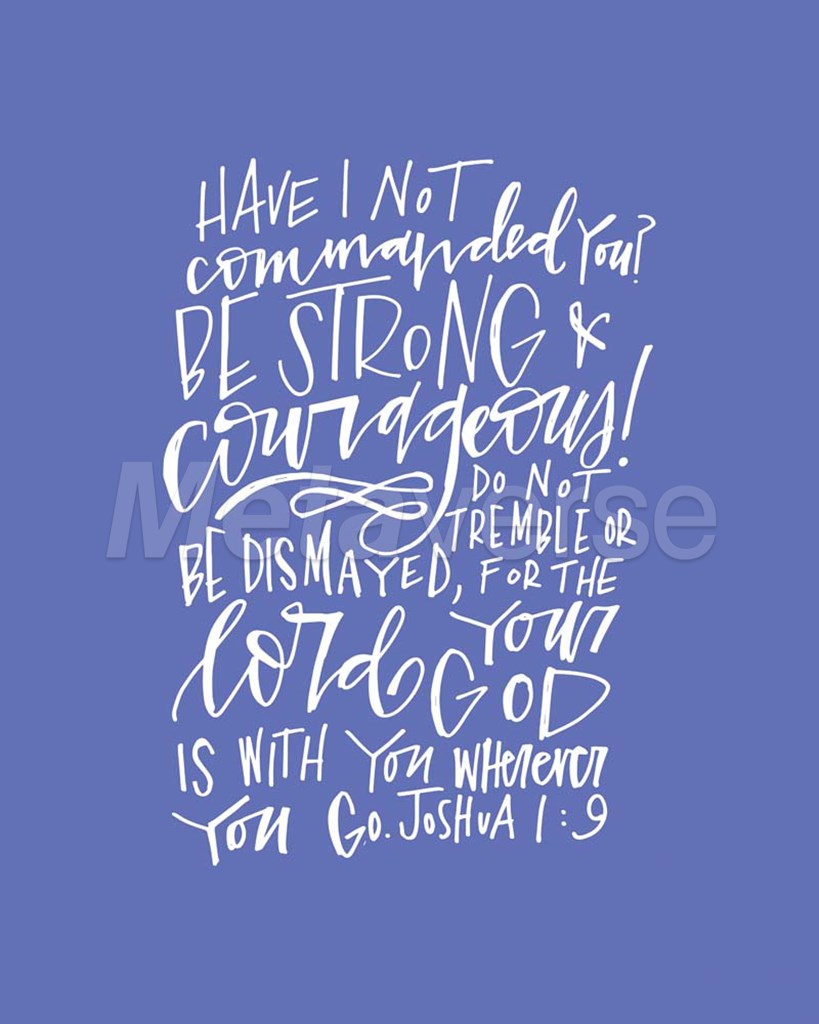 HAVE I NOT
commanded You?
BE STRONG &
courageous!
DO NOT
TREMBLE OR
BE DISMAYED, FOR THE
lord Your
GOD
IS WITH YOU WHerever
You Go. JOSHUA 1:9
Metaverse